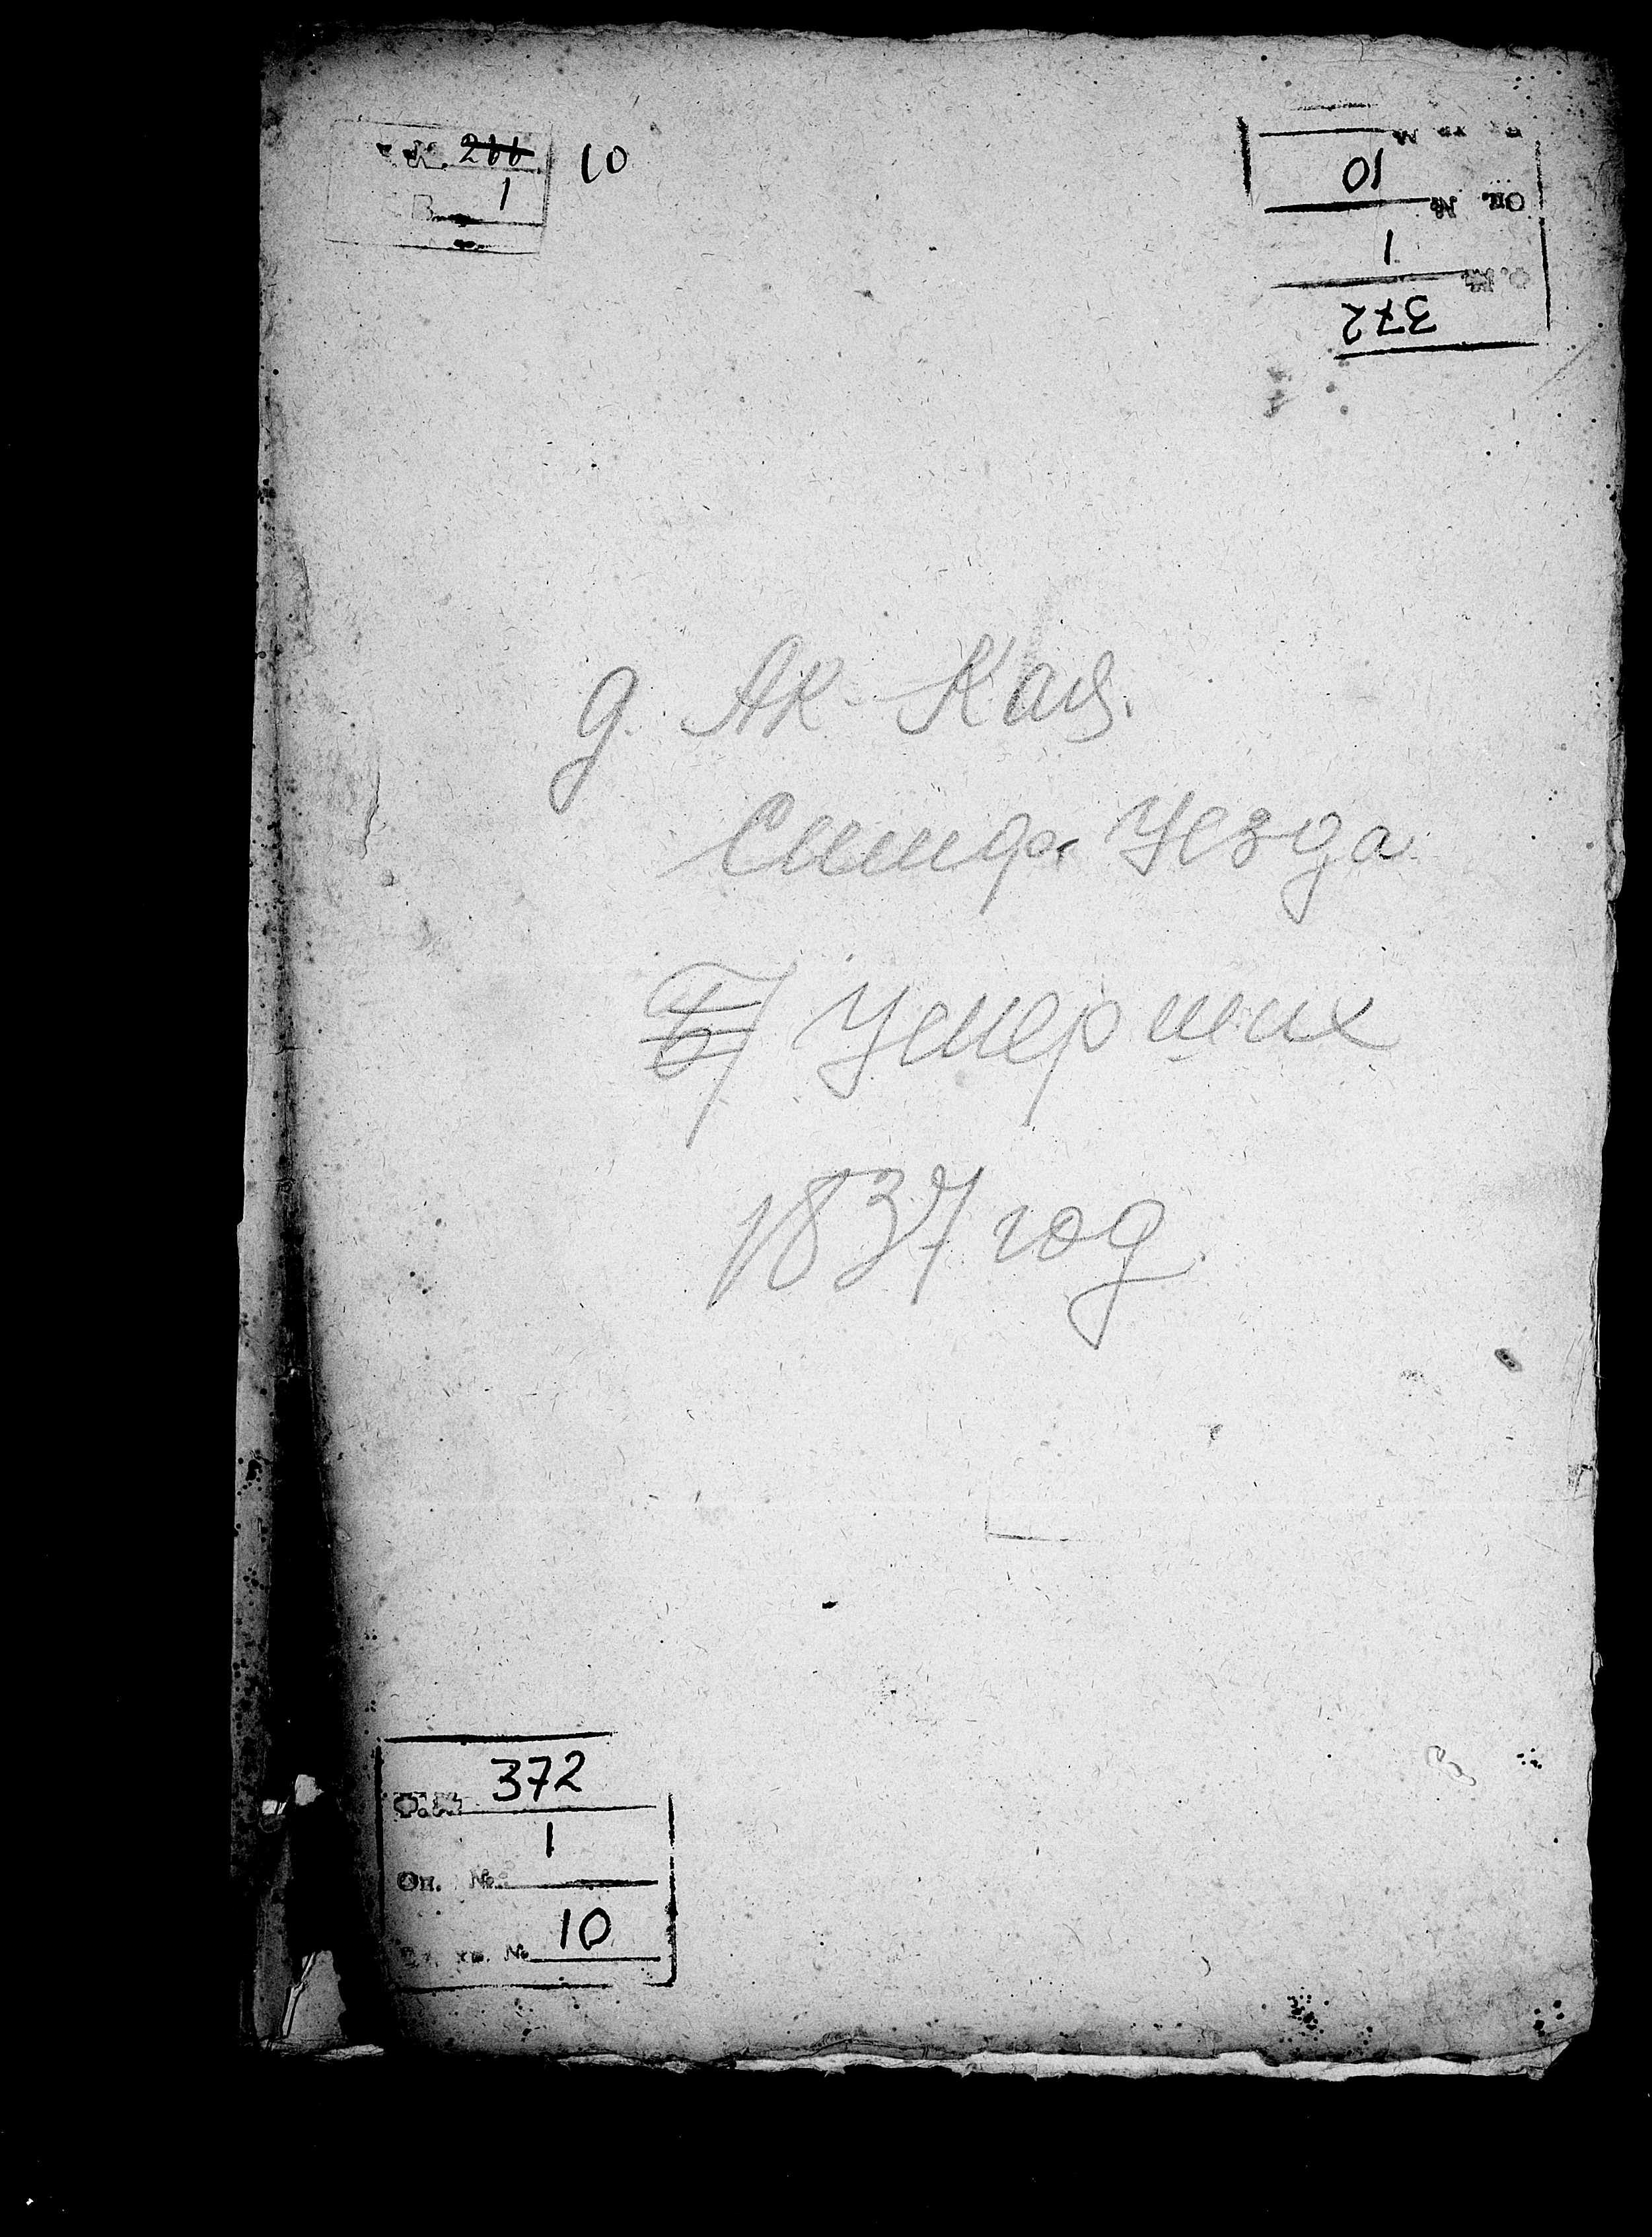 266
1
10
10
Оп. №
1
Ф. №
372
д. Ак-Кая.
Симф. Уезда
Умерших
1837 год
Ф. № 372
1
Оп. №
Ед. хр. № 10